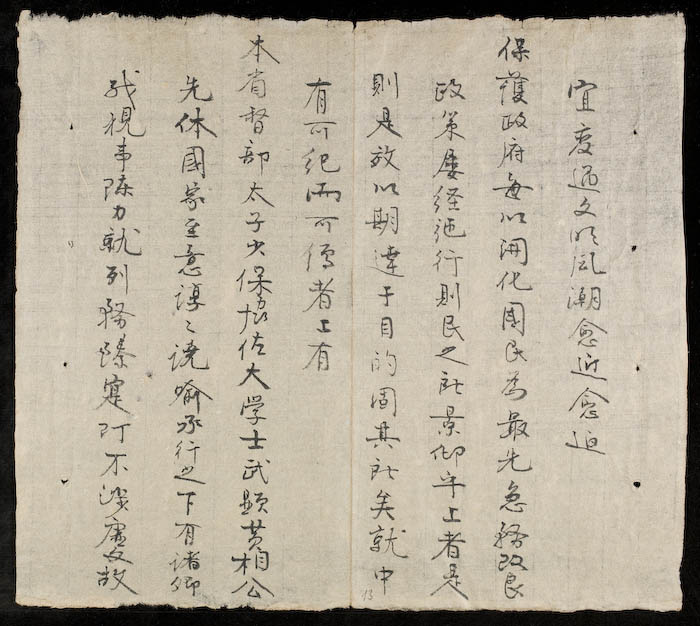 宜交通文明風潮愈近愈迫
保護政府每以開化國民為最先急務改良
政策屢経施行則民之所景仰乎上者是
則是效以期達于目的固其所矣就中
有可紀而可傳者上有
本省督部太子少保協佐大学士武顯黃相公
先体國家至意諄〻譊喻承行之下有諸卿
職視事陳力就列務臻寔阿不涉虛文故